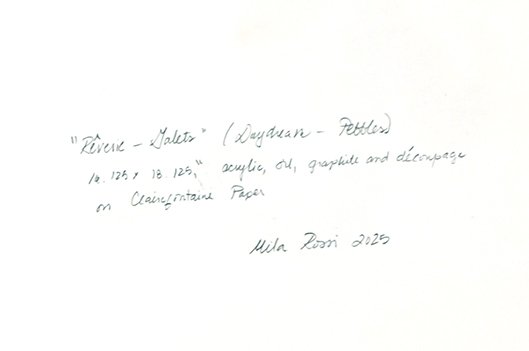 "Rêverie - Galets" (Daydream - Pebbles)
18.125", acrylic, oil, graphite and découpage
on Clairefontaine Paper
Mila Rossi 2025